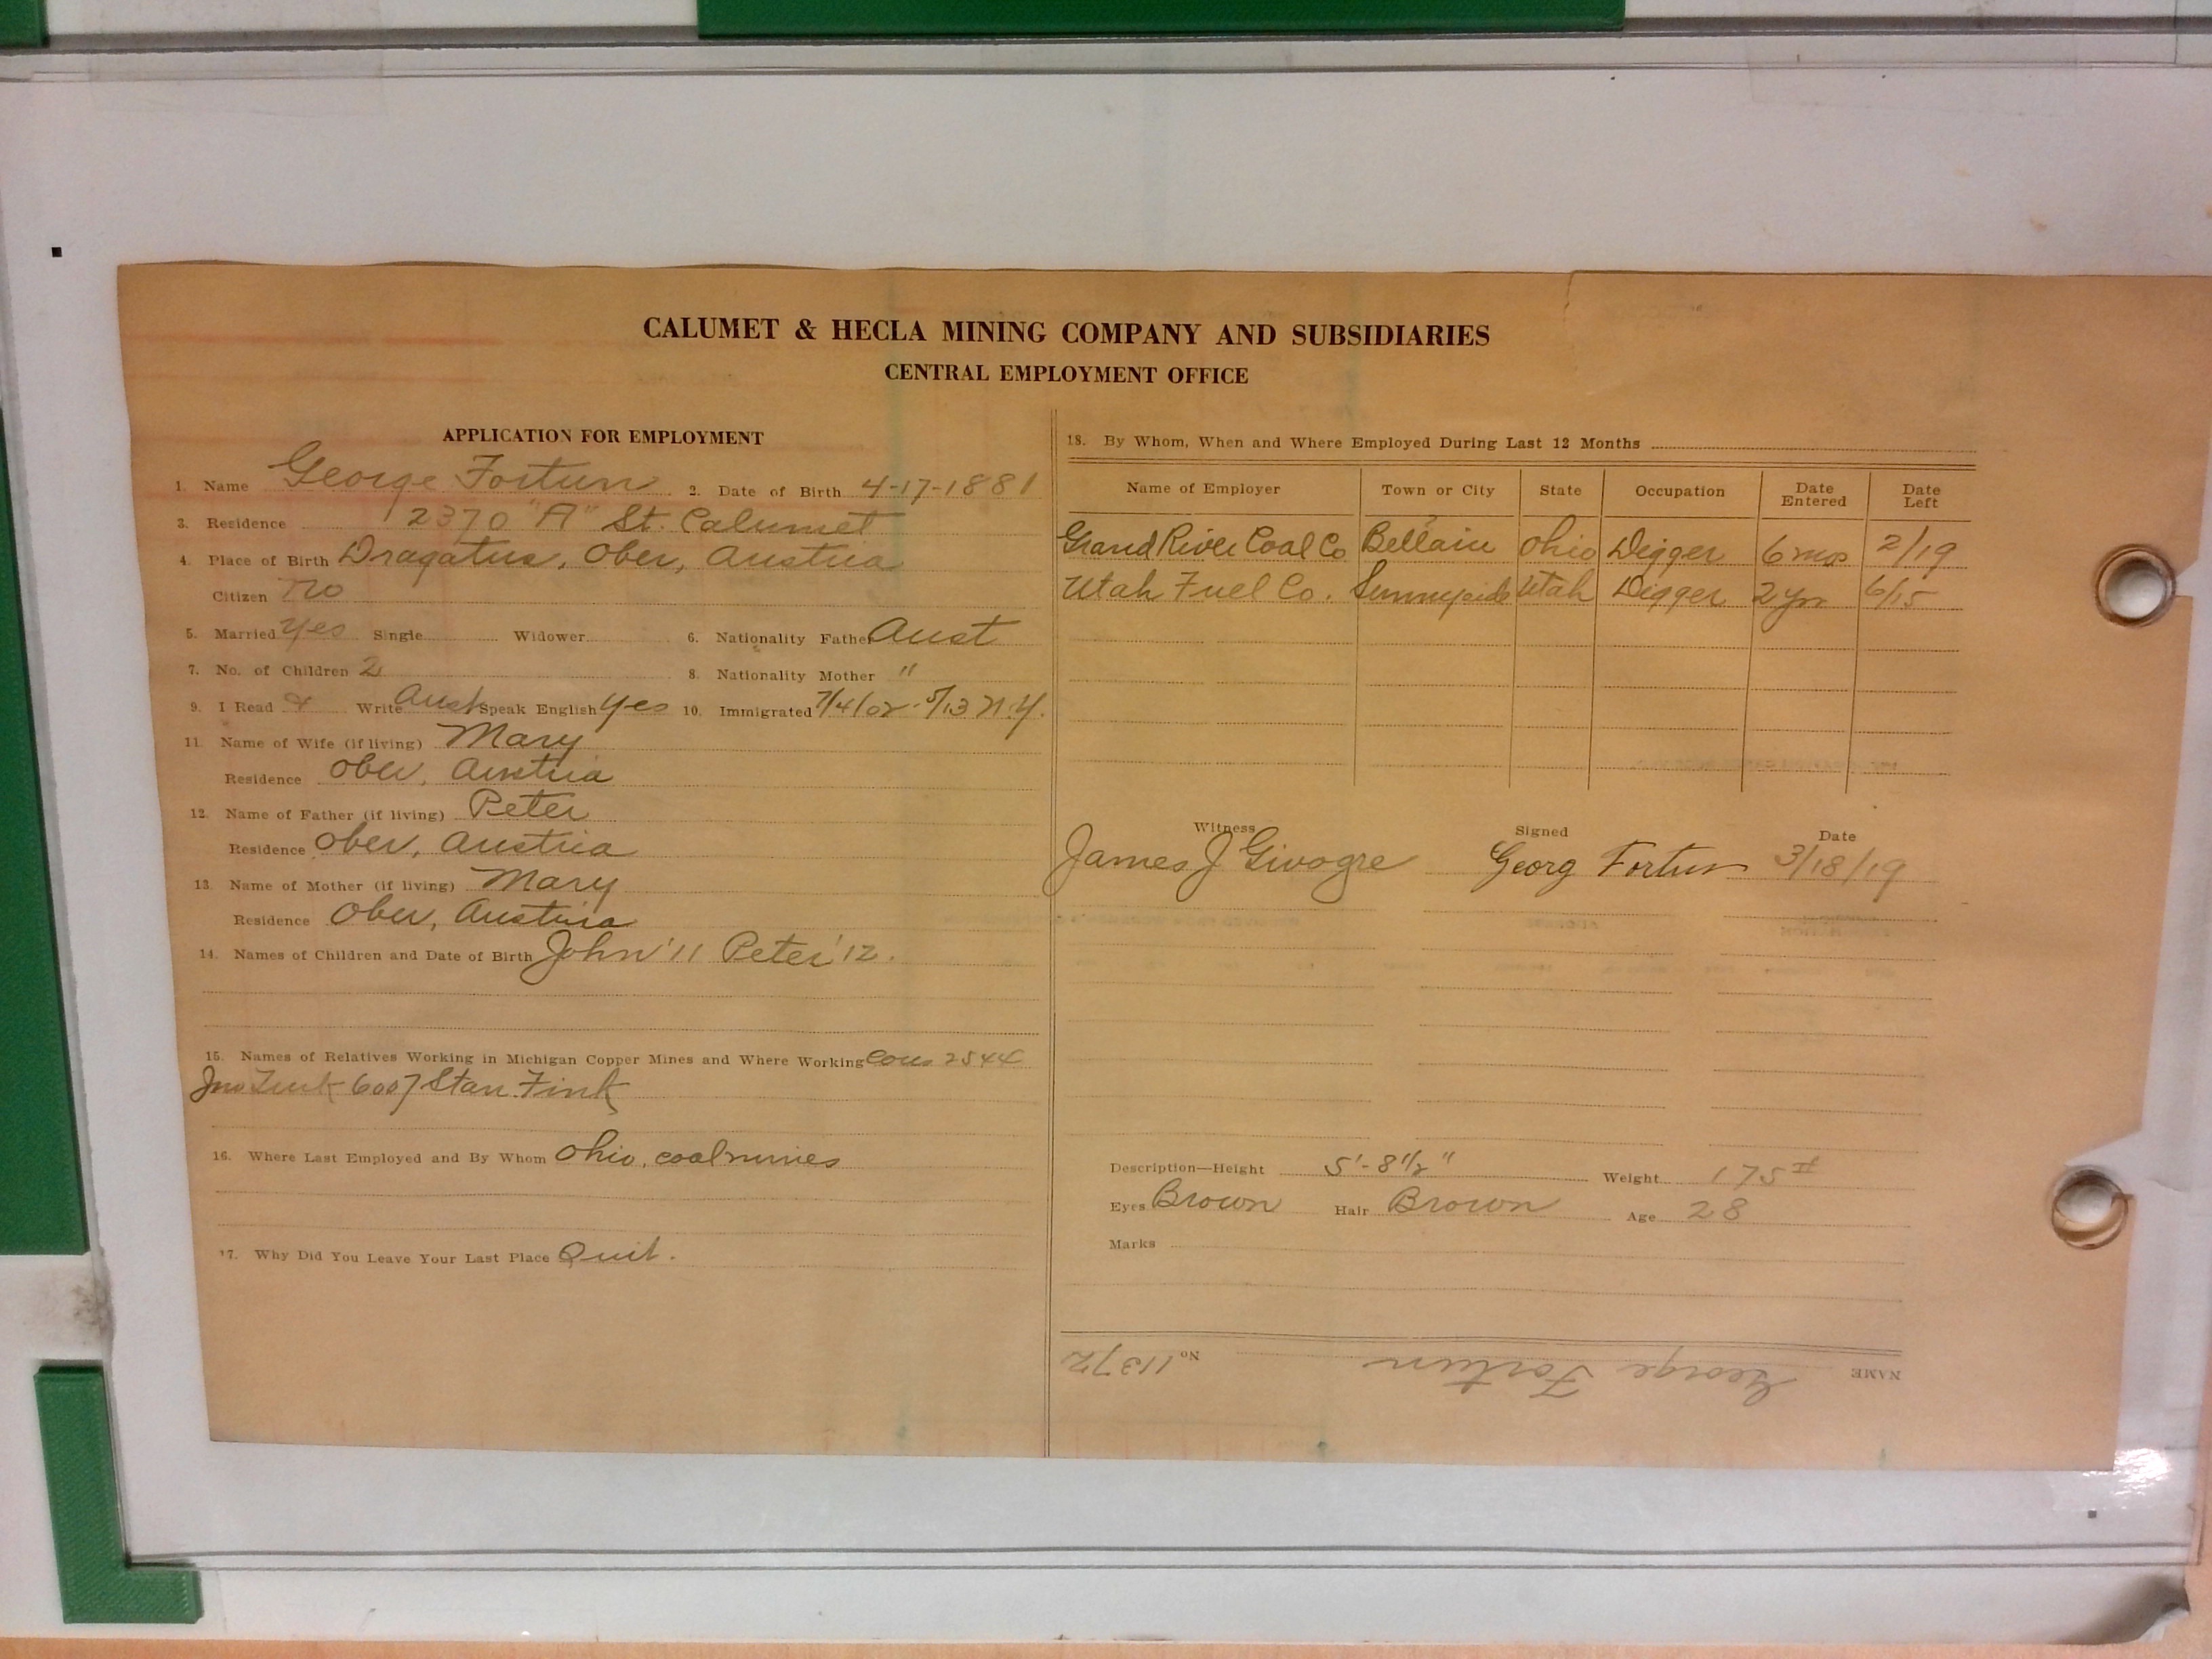 CALUMET & HECLA MINING COMPANY AND SUBSIDIARIES
CENTRAL EMPLOYMENT OFFICE
APPLICATION FOR EMPLOYMENT
1. Name George Fortun 2. Date of Birth 4-17-1881
3. Residence 2370 "A" St. Calumet
4. Place of Birth Dragatus, Ober, Austria
Citizen No
5. Married Yes Single Widower 6. Nationality Father Aust
7. No. of Children 2 8. Nationality Mother "
9. I Read & Write Aust Speak English Yes 10. Immigrated 7/4/02 - 5/13 N.Y.
11. Name of Wife (if living) Mary
Residence Ober, Austria
12. Name of Father (if living) Peter
Residence Ober, Austria
13. Name of Mother (if living) Mary
Residence Ober, Austria
14. Names of Children and Date of Birth John '11 Peter '12.
15. Names of Relatives Working in Michigan Copper Mines and Where Working Cous 2544
Jno 6007 Stan. Fink
16. Where Last Employed and By Whom Ohio, coal mines
17. Why Did You Leave Your Last Place Quit.
18. By Whom, When and Where Employed During Last 12 Months
Name of Employer Town or City State Occupation Date Entered Date Left
Grand River Coal Co Bellair Ohio Digger 6 mos 2/19
Utah Fuel Co. Sunnyside Utah Digger 2 yrs 6/15
Witness Signed Date
James J Givogre Georg Fortun 3/18/19
Description—Height 5'-8 1/2" Weight 175 #
Eyes Brown Hair Brown Age 28
Marks
NAME George Fortun No 11372